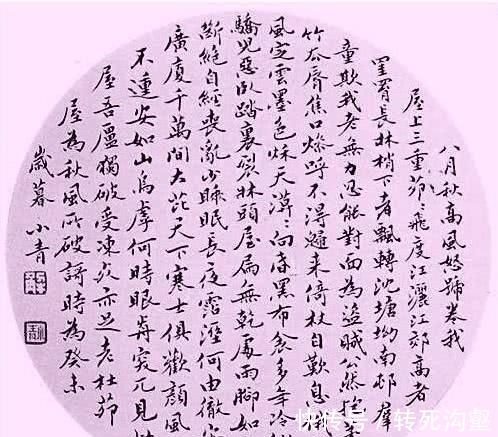 八月秋高風怒號卷我
屋上三重茆〻飛度江灑江郊高者
罣罥長林梢下者飄轉沈塘坳南邨羣
童欺我老無力忍能對面為盜賊公然
竹去脣焦口燥呼不得歸來倚杖自歎息
風定雲墨色秋天漠〻向昏黑布衾多年冷
驕兒惡臥踏裏裂牀頭屋漏無乾處雨腳如
斷絕自經喪亂少睡眠長夜霑溼何由徹
廣廈千萬間大庇天下寒士俱歡顏風
不安如山嗚虖何時眼前突兀見
屋吾廬獨破受凍死亦足老杜茆
屋為秋風所破謌時為癸未
歲暮小青
快传号/转死沟壑